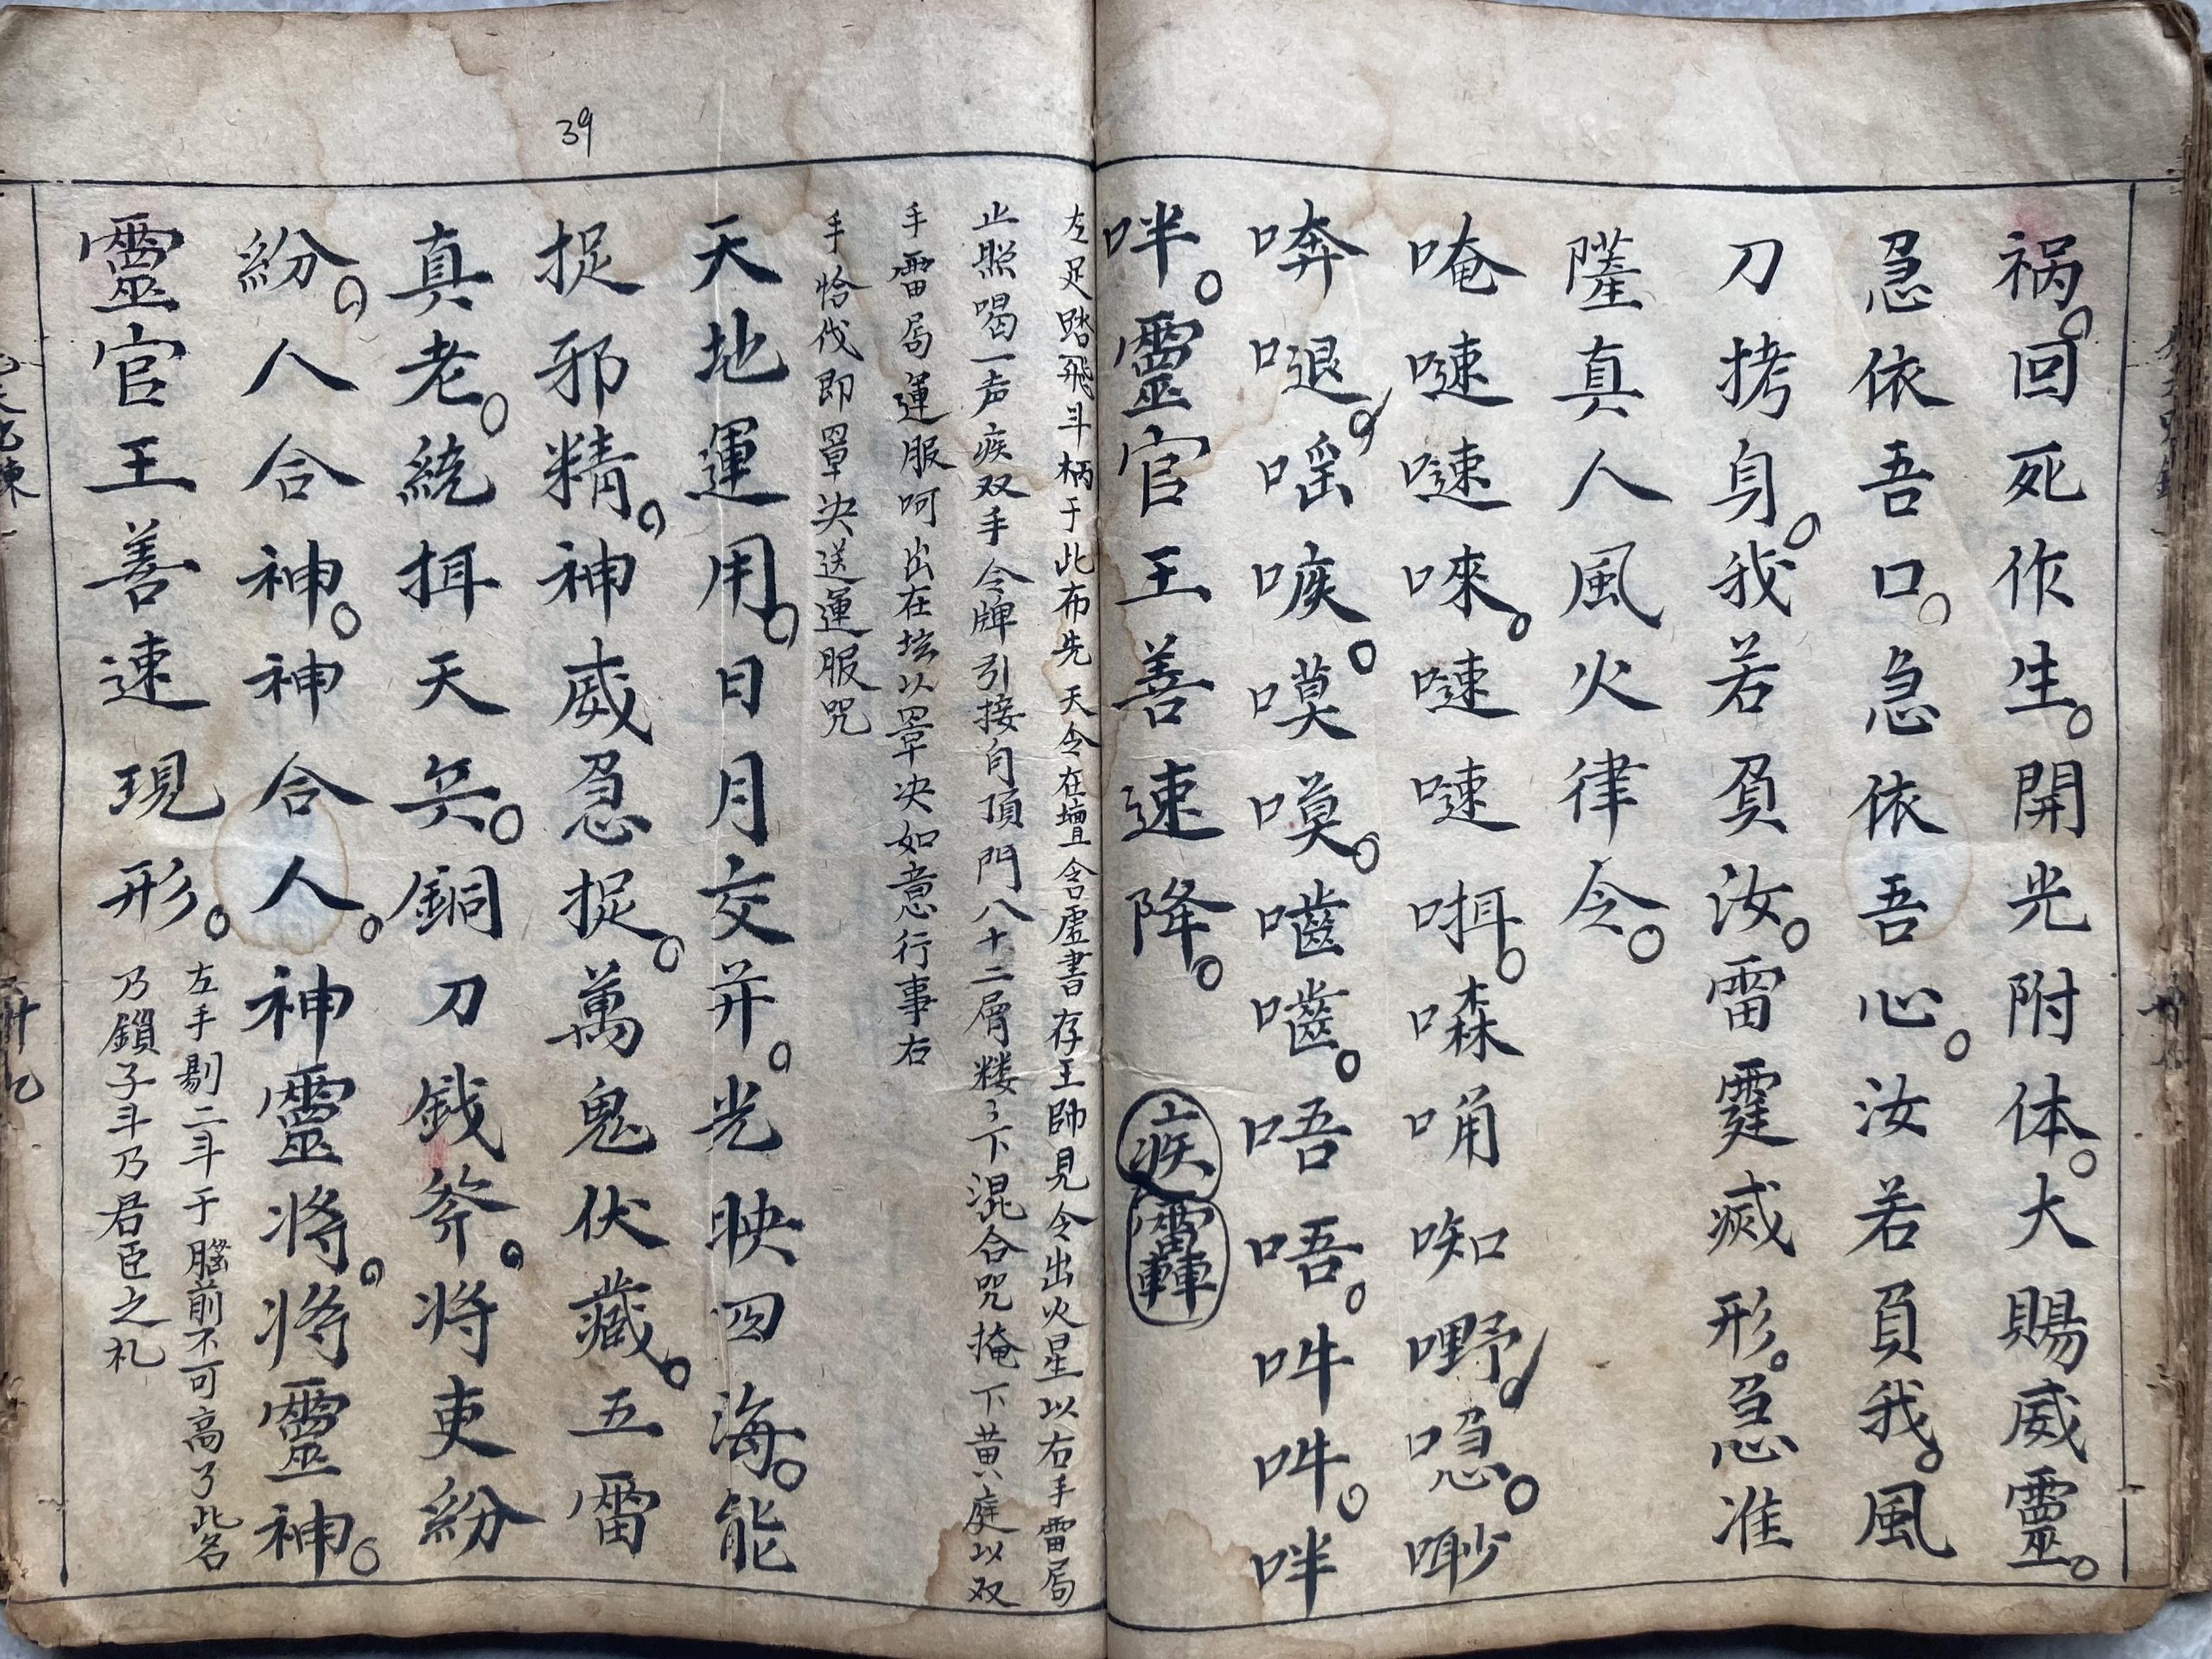 祸。回死作生。開光附体。大賜威靈。
急依吾口。急依吾心。汝若負我。風
刀拷身。我若負汝。雷霆滅形。急准
薩真人風火律令。
唵㖀㖀唻。㖀㖀㗏。㗲哨𠴧嘢。㗭。唦
㗙𠺙。嗂㗱。嘆嘆。嚙嚙。唔唔。吽吽。哶
哶。靈官王善速降。疾 雷轟
左足踏飛斗柄于此布先天令在壇含虛書存王帥見令出火星以右手雷局
止照喝一声疾双手令牌引接自頂門八十二層楼々下混合咒掩下黄庭以双
手雷局運服呵出在坛以罩决如意行事右
手恰伐即罩决送運服咒
天地運用。日月交并。光映四海。能
捉邪精。神威急捉。萬鬼伏藏。五雷
真老。統揖天兵。銅刀鉞斧。将吏紛
紛。人合神。神合人。神靈将。将靈神。
靈官王善速現形。
左手剔二斗于腦前不可高了此名
乃鎖子斗乃君臣之礼
39